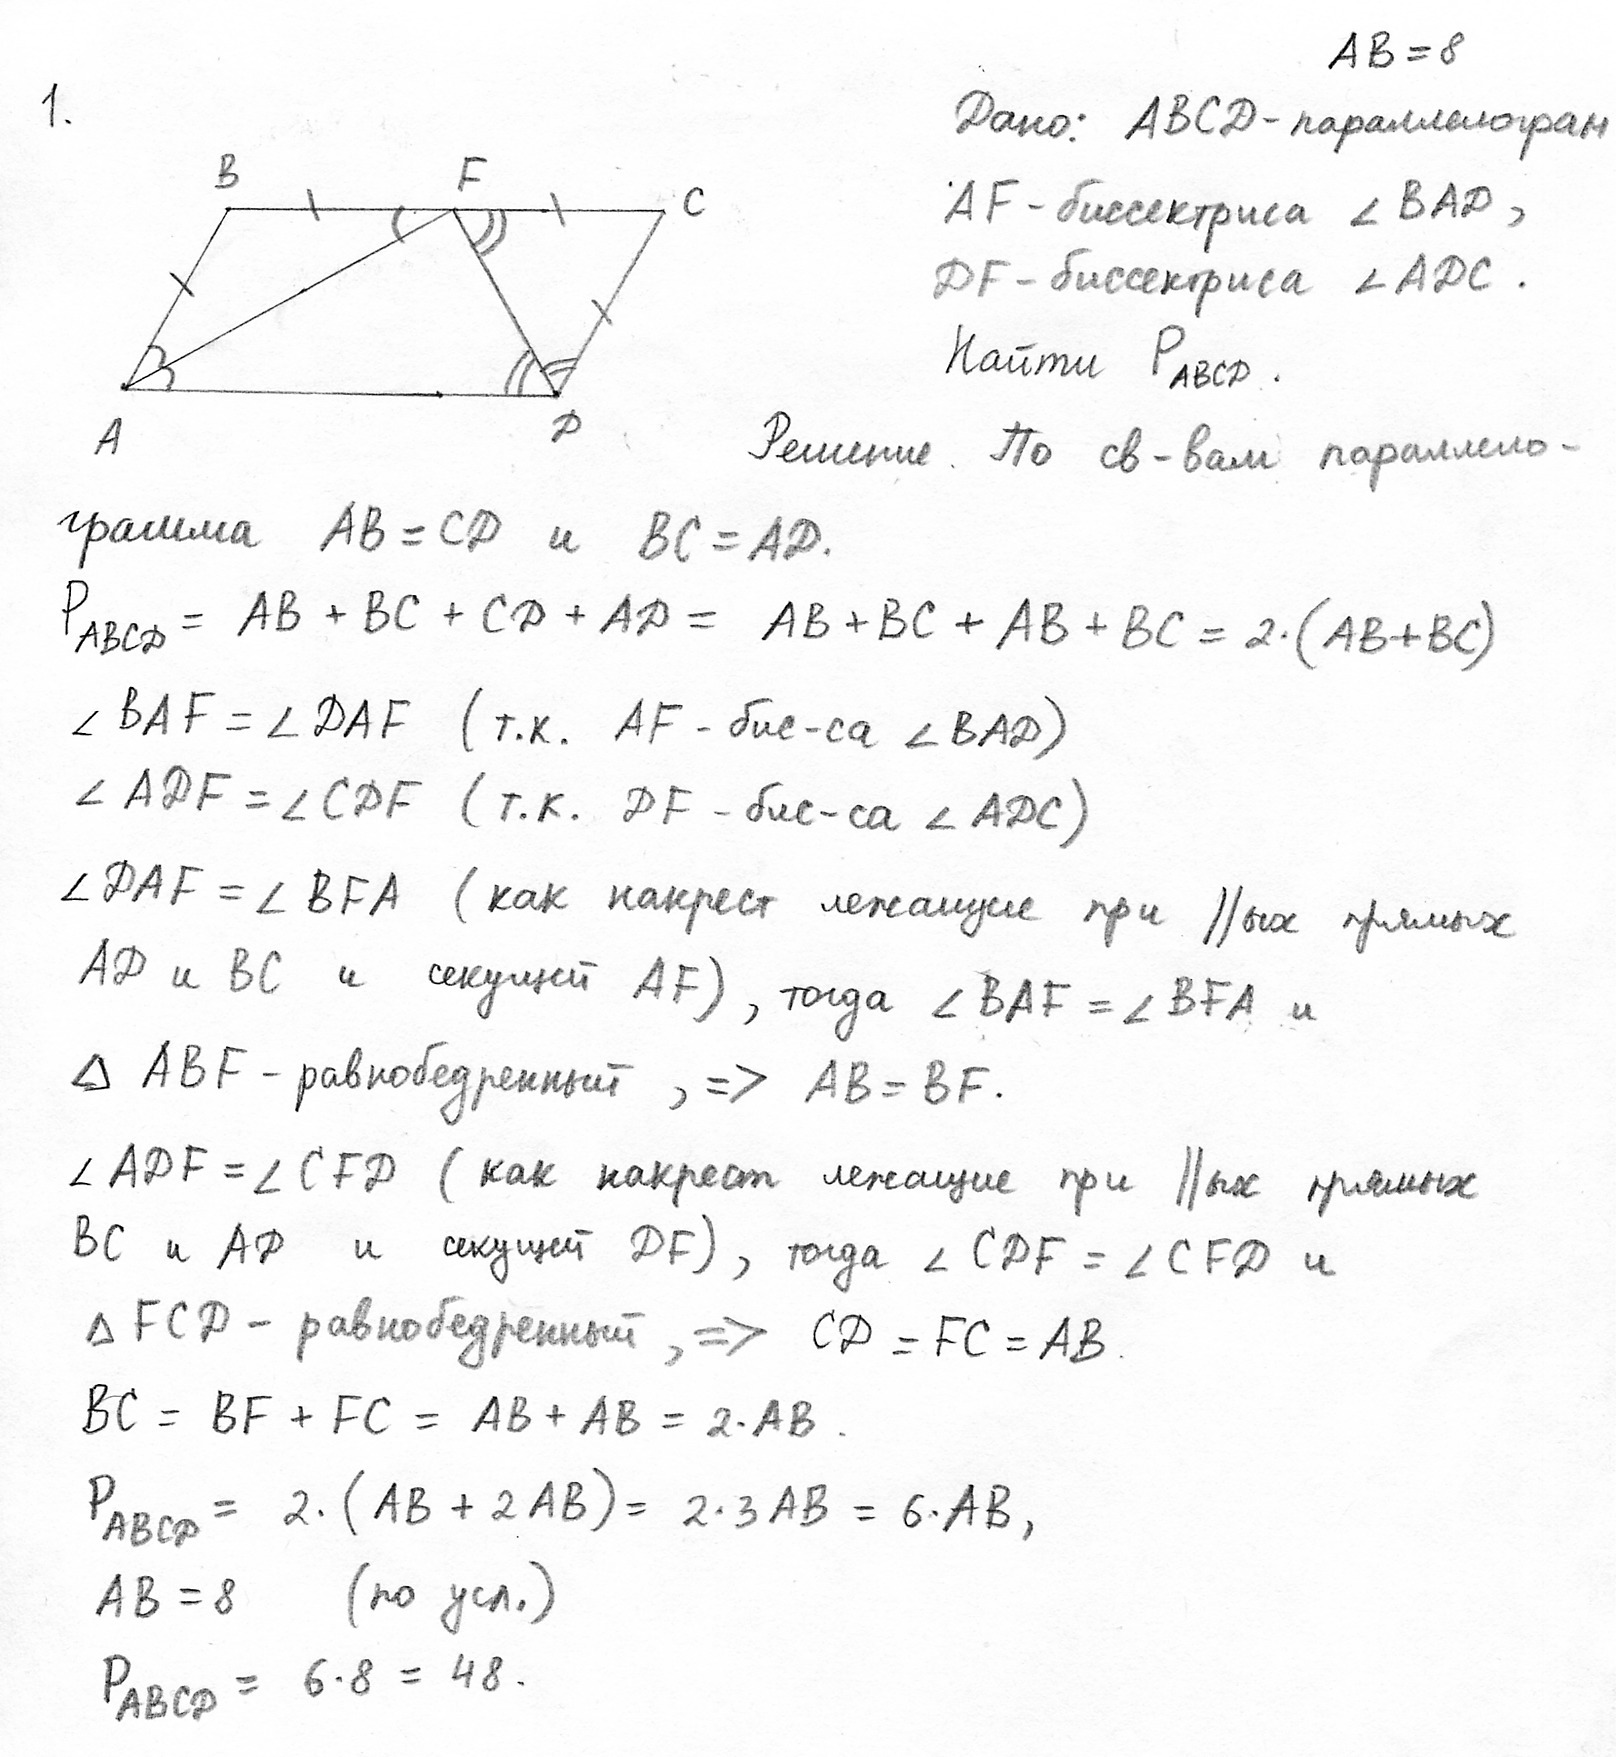 AB = 8
1.
Дано: ABCD - параллелограм
B F C
AF - биссектриса ∠BAD,
DF - биссектриса ∠ADC.
Найти P_ABCD.
A D
Решение. По св-вам параллело-
грамма AB = CD и BC = AD.
P_ABCD = AB + BC + CD + AD = AB + BC + AB + BC = 2·(AB+BC)
∠BAF = ∠DAF (т.к. AF - бис-са ∠BAD)
∠ADF = ∠CDF (т.к. DF - бис-са ∠ADC)
∠DAF = ∠BFA (как накрест лежащие при ||ых прямых
AD и BC и секущей AF), тогда ∠BAF = ∠BFA и
△ ABF - равнобедренный, => AB = BF.
∠ADF = ∠CFD (как накрест лежащие при ||ых прямых
BC и AD и секущей DF), тогда ∠CDF = ∠CFD и
△ FCD - равнобедренный, => CD = FC = AB.
BC = BF + FC = AB + AB = 2·AB.
P_ABCD = 2·(AB + 2AB) = 2·3AB = 6·AB,
AB = 8 (по усл.)
P_ABCD = 6·8 = 48.